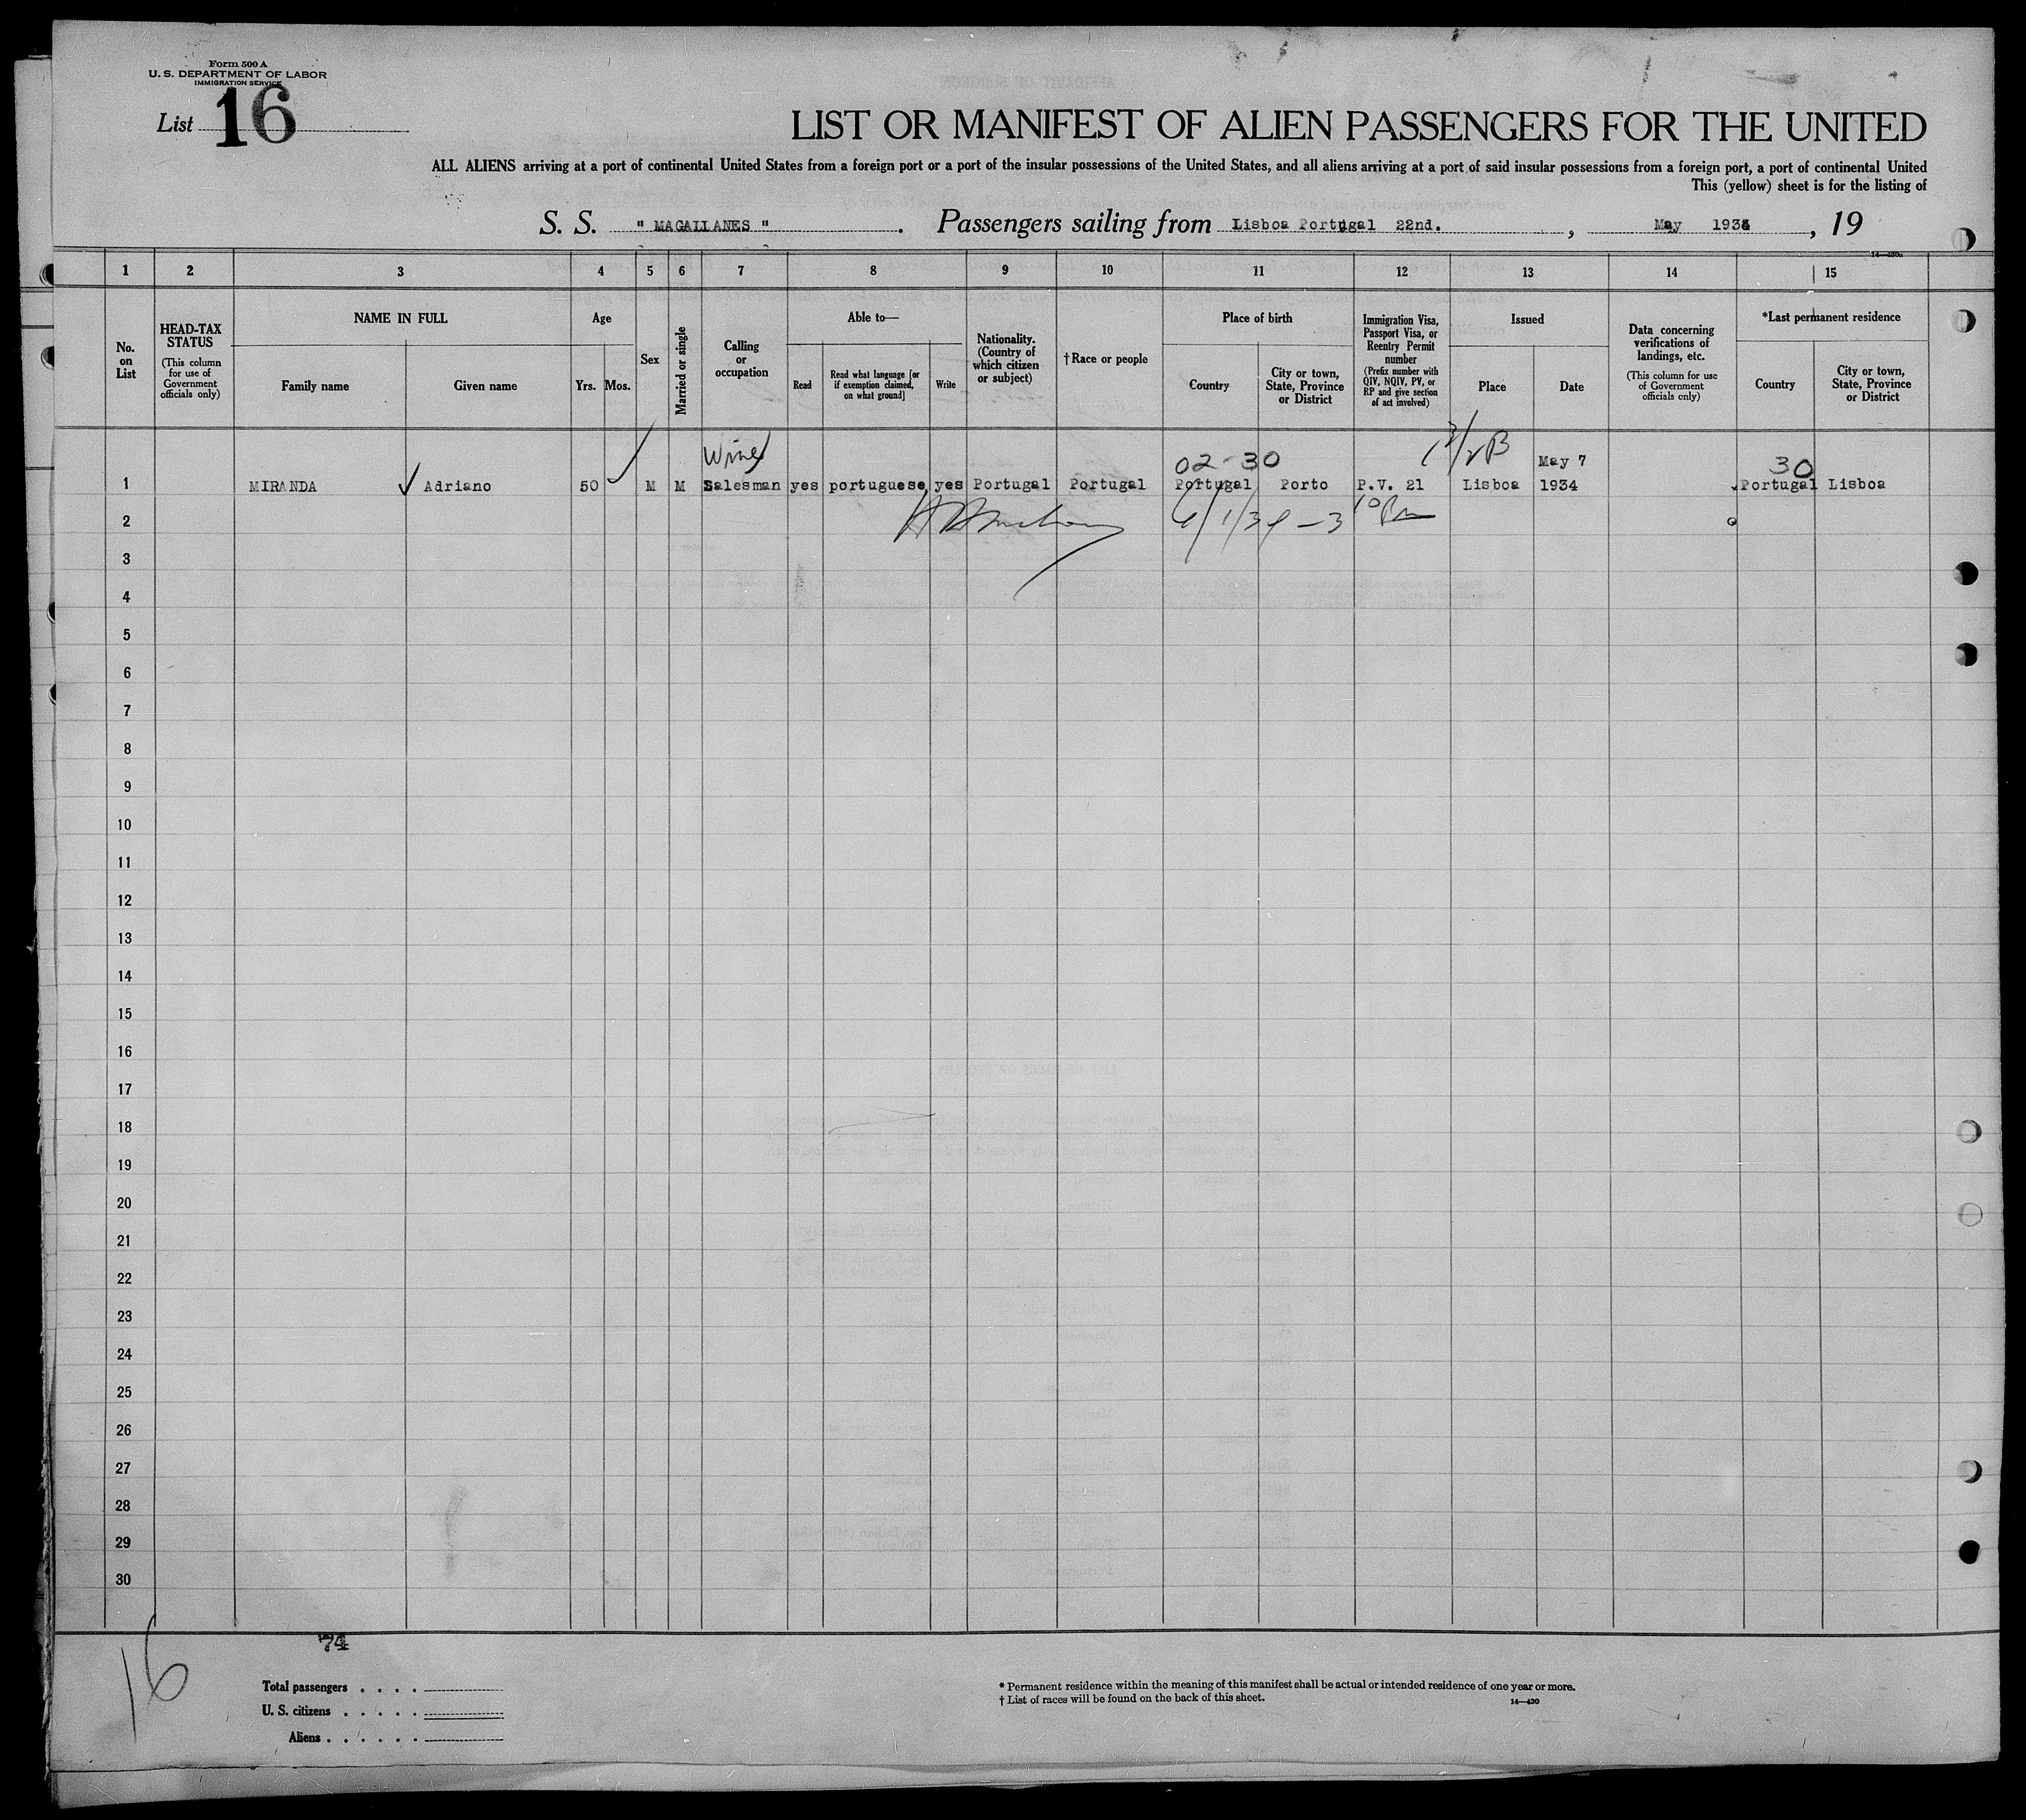 Form 500 A
U. S. DEPARTMENT OF LABOR
IMMIGRATION SERVICE
List 16
LIST OR MANIFEST OF ALIEN PASSENGERS FOR THE UNITED
ALL ALIENS arriving at a port of continental United States from a foreign port or a port of the insular possessions of the United States, and all aliens arriving at a port of said insular possessions from a foreign port, a port of continental United
This (yellow) sheet is for the listing of
S. S. " MAGALLANES " . Passengers sailing from Lisboa Portugal 22nd. , May 1934 , 19
14-430a
1 2 3 4 5 6 7 8 9 10 11 12 13 14 15
No. on List
HEAD-TAX STATUS
(This column for use of Government officials only)
NAME IN FULL
Family name
Given name
Age
Yrs.
Mos.
Sex
Married or single
Calling or occupation
Able to—
Read
Read what language [or if exemption claimed, on what ground]
Write
Nationality. (Country of which citizen or subject)
†Race or people
Place of birth
Country
City or town, State, Province or District
Immigration Visa, Passport Visa, or Reentry Permit number
(Prefix number with QIV, NQIV, PV, or RP and give section of act involved)
Issued
Place
Date
Data concerning verifications of landings, etc.
(This column for use of Government officials only)
*Last permanent residence
Country
City or town, State, Province or District
Wine
02-30
3/2B
May 7
30
1 MIRANDA Adriano 50 M M Salesman yes portuguese yes Portugal Portugal Portugal Porto P.V. 21 Lisboa 1934 Portugal Lisboa
2 6/1/34 - 3 10 Pm
3
4
5
6
7
8
9
10
11
12
13
14
15
16
17
18
19
20
21
22
23
24
25
26
27
28
29
30
16
74
Total passengers . . . .
U. S. citizens . . . . .
Aliens . . . . . .
* Permanent residence within the meaning of this manifest shall be actual or intended residence of one year or more.
† List of races will be found on the back of this sheet.
14—430